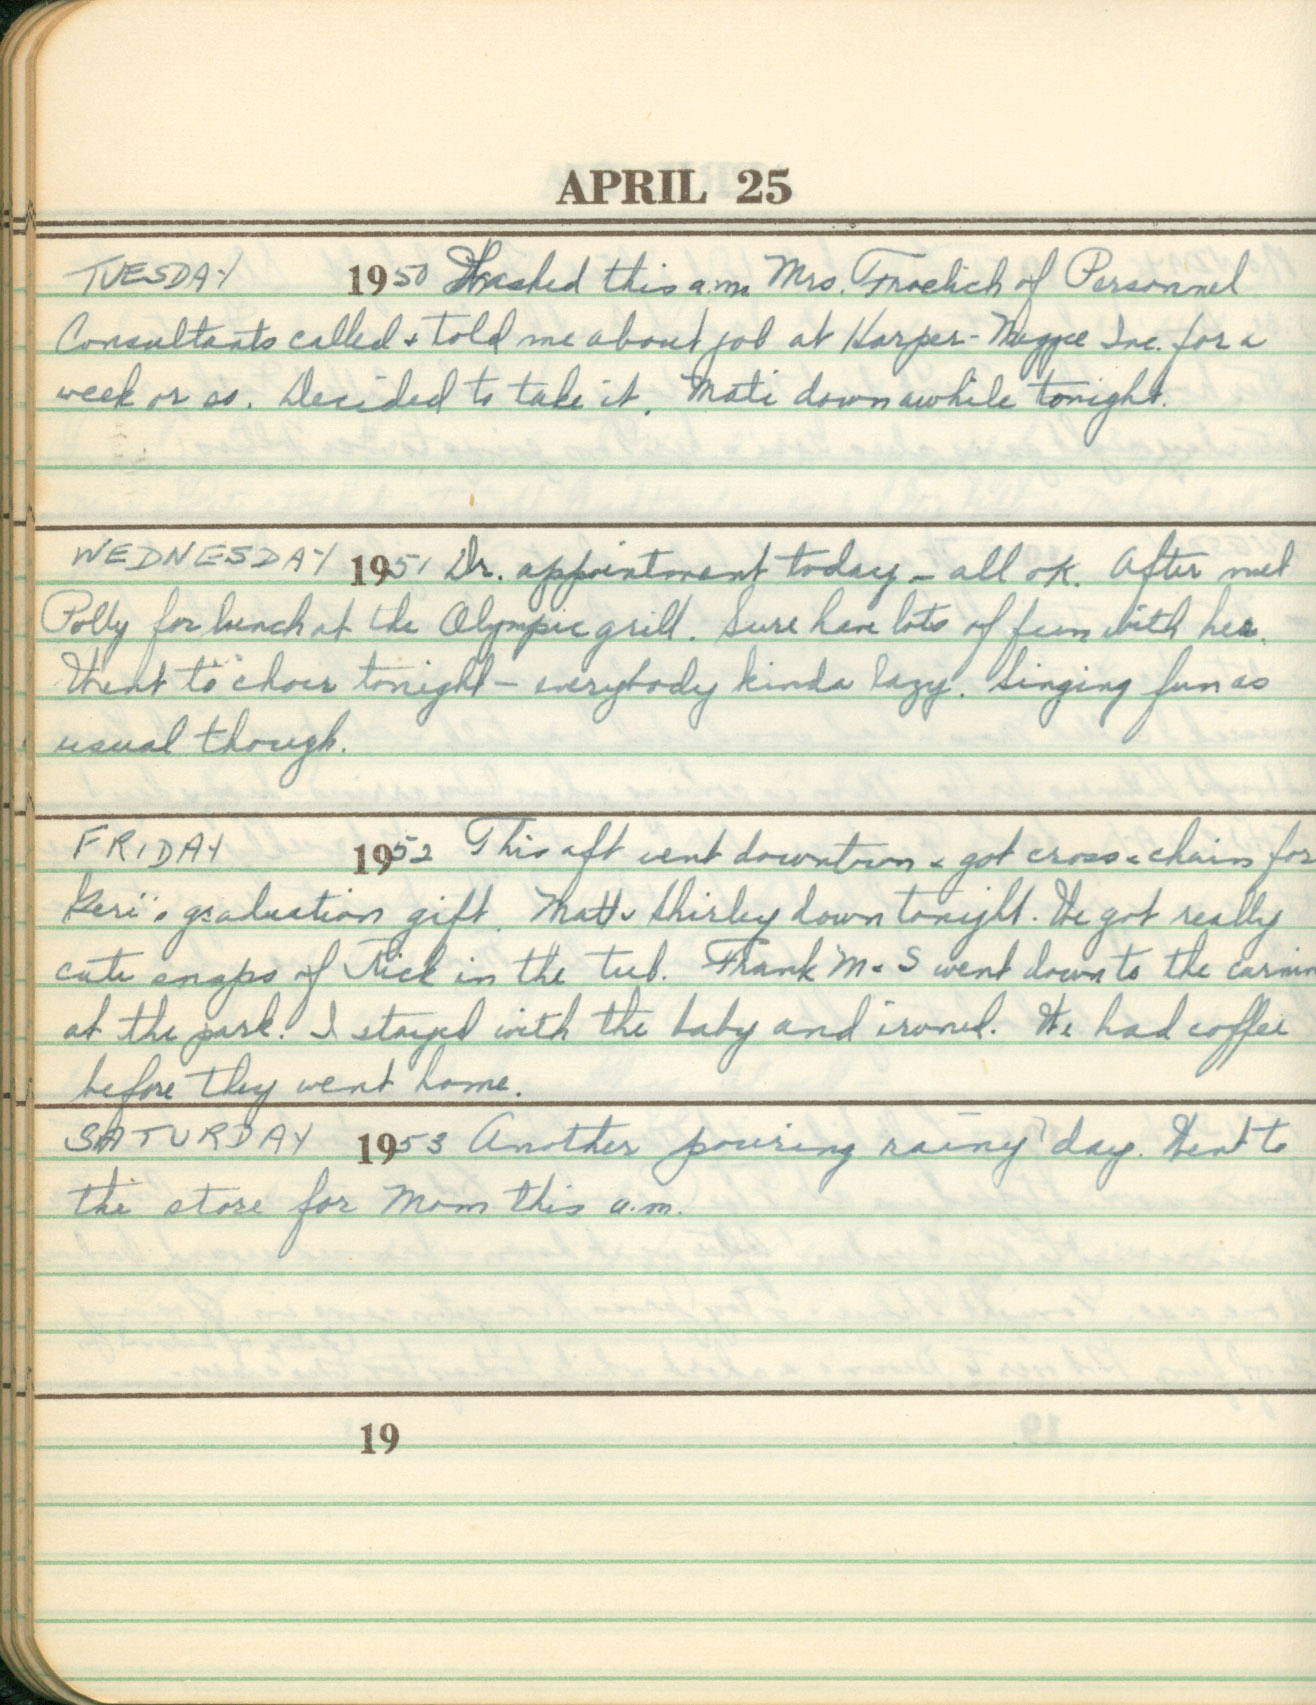 APRIL 25
TUESDAY 1950 Washed this a.m. Mrs. Froelich of Personnel
Consultants called & told me about job at Harper-Meggee Inc. for a
week or so. Decided to take it. Mati down awhile tonight.
WEDNESDAY 1951 Dr. appointment today - all ok. After met
Polly for lunch at the Olympic grill. Sure have lots of fun with her.
Went to choir tonight - everybody kinda lazy. Singing fun as
usual though.
FRIDAY 1952 This aft went downtown & got cross & chain for
Geri's graduation gift. Matt & Shirley down tonight. We got really
cute snaps of Rick in the tub. Frank M & S went down to the
at the park. I stayed with the baby and ironed. We had coffee
before they went home.
SATURDAY 1953 Another pouring rainy day. Went to
the store for Mom this a.m.
19